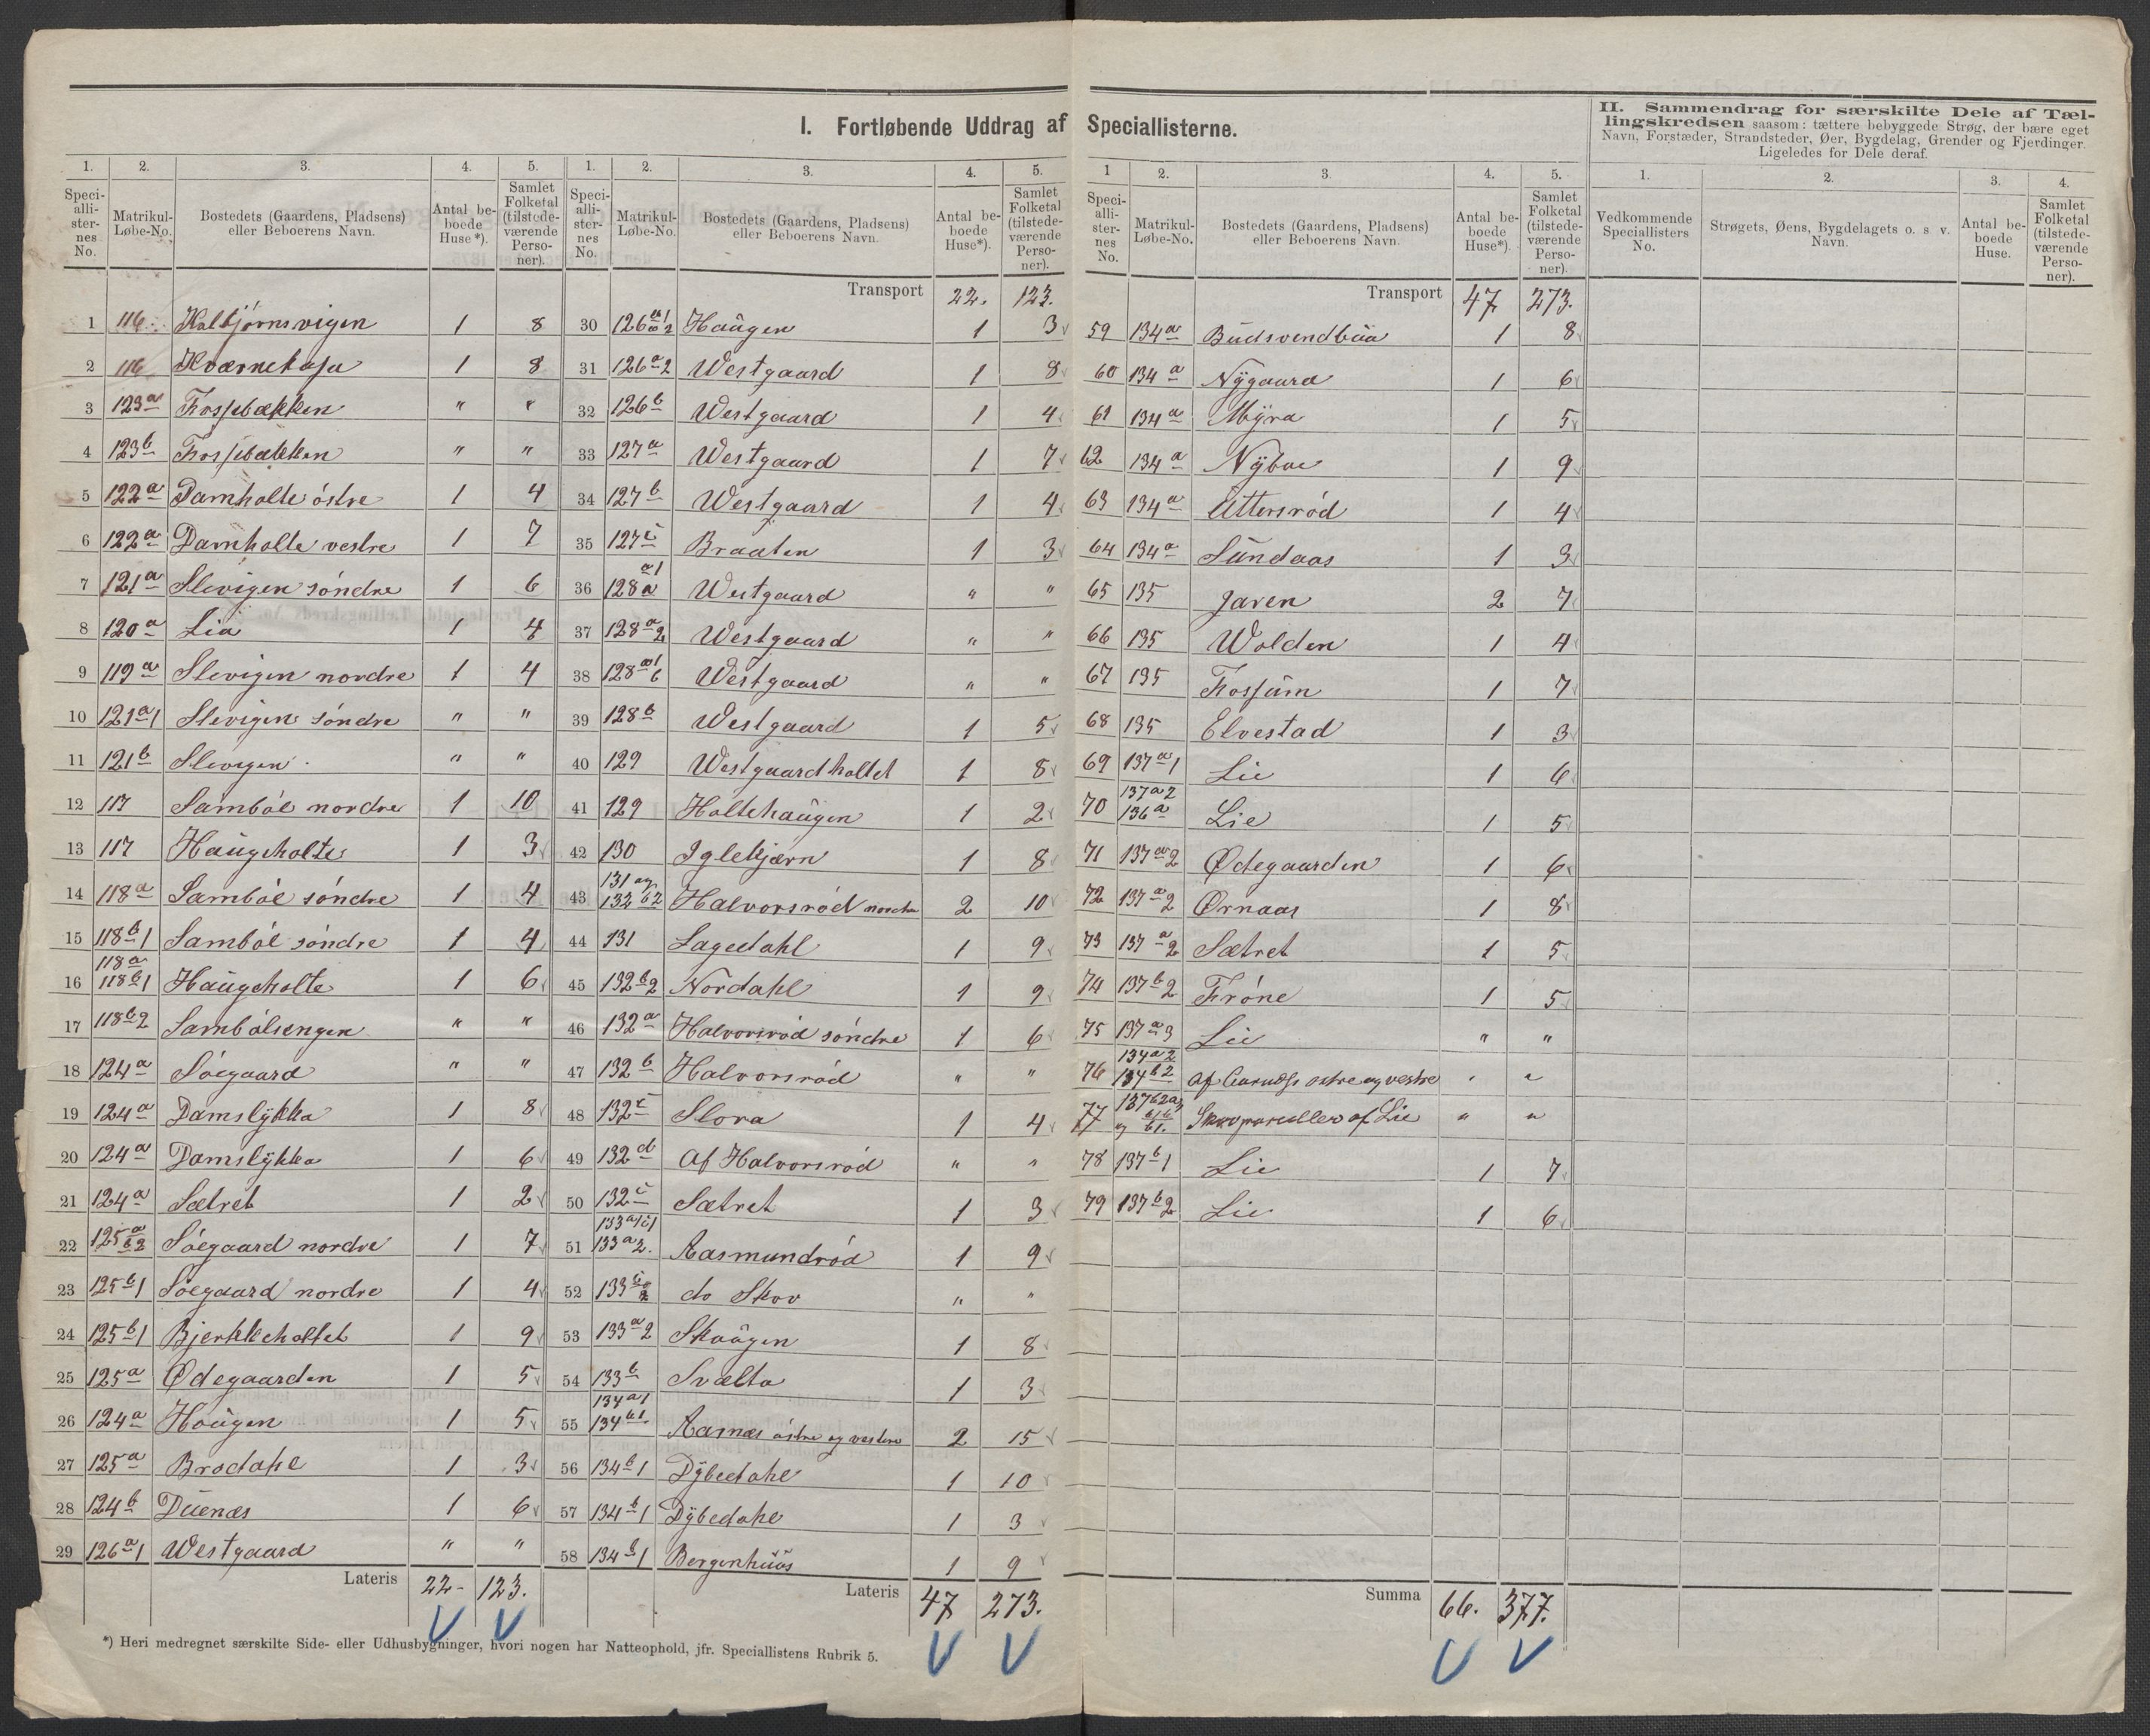 I. Fortløbende Uddrag af Speciallisterne.
II. Sammendrag for særskilte Dele af Tæl-
lingskredsen saasom: tættere bebyggede Strøg, der bære eget
Navn, Forstæder, Strandsteder, Øer, Bygdelag, Grender og Fjerdinger.
Ligeledes for Dele deraf.
1. 2. 3. 4. 5.
Speci-alli-ster-nes No. Matrikul-Løbe-No. Bostedets (Gaardens, Pladsens) eller Beboerens Navn. Antal be-boede Huse*). Samlet Folketal (tilstede-værende Perso-ner).
1 116 Kalbjørnsvigen 1 8
2 116 Kværnekasa 1 8
3 123a Fossebækken " "
4 123b Fossebækken " "
5 122a Damholte östre 1 4
6 122a Damholte vestre 1 7
7 121a Slevigen söndre 1 6
8 120a Lia 1 4
9 119a Slevigen nordre 1 4
10 121a1 Slevigen söndre " "
11 121b Slevigen " "
12 117 Samböl nordre 1 10
13 117 Haugeholte 1 3
14 118a Samböl söndre 1 4
15 118b1 Samböl söndre 1 4
16 118a 118b1 Haugeholte 1 6
17 118b2 Sambölsengen " "
18 124a Söegaard " "
19 124a Damslykka 1 8
20 124a Damslykka 1 6
21 124a Sætret 1 2
22 125a b2 Söegaard nordre 1 7
23 125b1 Söegaard nordre 1 4
24 125b1 Bjerkkeholtet 1 9
25 125a Ødegaarden 1 5
26 124a Haugen 1 5
27 125a Brodahl 1 3
28 124b Duenæs 1 6
29 126a1 Westgaard " "
Lateris 22- 123.
1. 2. 3. 4. 5.
Speci-alli-ster-nes No. Matrikul-Løbe-No. Bostedets (Gaardens, Pladsens) eller Beboerens Navn. Antal be-boede Huse*). Samlet Folketal (tilstede-værende Perso-ner).
Transport 22. 123.
30 Haugen 1 3
31 126a2 Westgaard 1 8
32 126b Westgaard 1 4
33 127a Westgaard 1 7
34 127b Westgaard 1 4
35 127c Braaten 1 3
36 Westgaard " "
37 128a2 Westgaard " "
38 Westgaard " "
39 128b Westgaard 1 5
40 129 Westgaardholtet 1 8
41 129 Holtehaugen 1 2
42 130 Iglekjærn 1 8
43 131 og 132 b2 Halvorsröd nordre 2 10
44 131 Lagedahl 1 9
45 132b2 Nordahl 1 9
46 132a Halvorsröd söndre 1 6
47 132b Halvorsröd " "
48 132c Slora 1 4
49 132d Af Halvorsröd " "
50 132c Sætret 1 3
51 133a2. Aasmundröd 1 9
52 do Skov " "
53 133a2 Skaugen 1 8
54 133b Svælta 1 3
55 134a1 134b1 Aarnæs östre og vestre 2 15
56 134b1 Dybedahl 1 10
57 134b1 Dybedahl 1 3
58 134b1 Bergenhuus 1 9
Lateris 47 273.
1 2. 3. 4. 5.
Speci-alli-ster-nes No. Matrikul-Løbe-No. Bostedets (Gaardens, Pladsens) eller Beboerens Navn. Antal be-boede Huse*). Samlet Folketal (tilstede-værende Perso-ner).
Transport 47 273.
59 134a Budsvendbua 1 8
60 134a Nygaard 1 6
61 134a Myra 1 5
62 134a Nyboe 1 9
63 134a Uttersröd 1 4
64 134a Sundaas 1 3
65 135 Jaren 2 7
66 135 Wolden 1 4
67 135 Fossum 1 7
68 135 Elvestad 1 3
69 137a1 Lie 1 6
70 137a2 136a Lie 1 5
71 137a2 Ødegaarden 1 6
72 137a2 Ørnaas 1 8
73 137a2 Sætret 1 5
74 137b2 Fröne 1 5
75 137a3 Lie " "
76 134a2 134b2 Af Aarnæs östre og vestre " "
77 Skovparceller af Lie " "
78 137b1 Lie 1 7
79 137b2 Lie 1 6
Summa 66. 377.
1. 2. 3. 4.
Vedkommende Speciallisters No. Strøgets, Øens, Bygdelagets o. s v. Navn. Antal be-boede Huse. Samlet Folketal (tilstede-værende Perso-ner).
*) Heri medregnet særskilte Side- eller Udhusbygninger, hvori nogen har Natteophold, jfr. Speciallistens Rubrik 5.